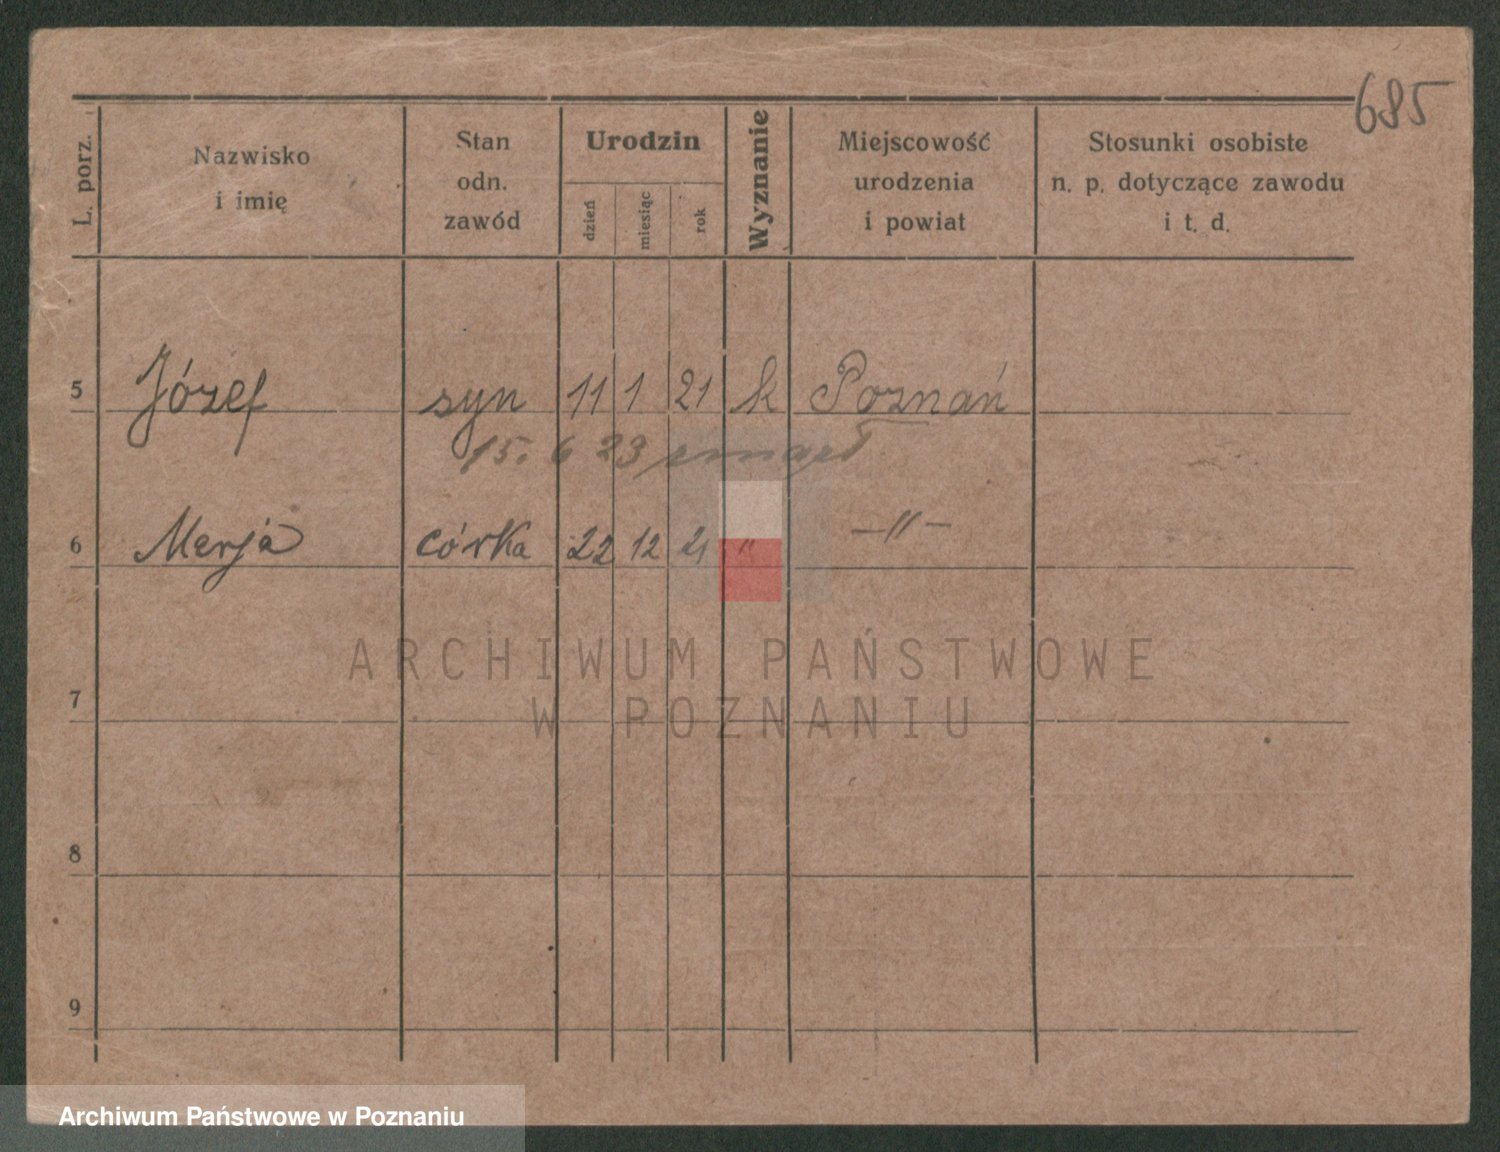 685
L. porz.
Nazwisko
i imię
Stan
odn.
zawód
Urodzin
dzień
miesiąc
rok
Wyznanie
Miejscowość
urodzenia
i powiat
Stosunki osobiste
n. p. dotyczące zawodu
i t. d.
5 Józef syn 11 1 21 k Poznań
15. 6 23 zmarł
6 Merja córka 22 12 21 " —"—
ARCHIWUM PAŃSTWOWE
W POZNANIU
7
8
9
Archiwum Państwowe w Poznaniu